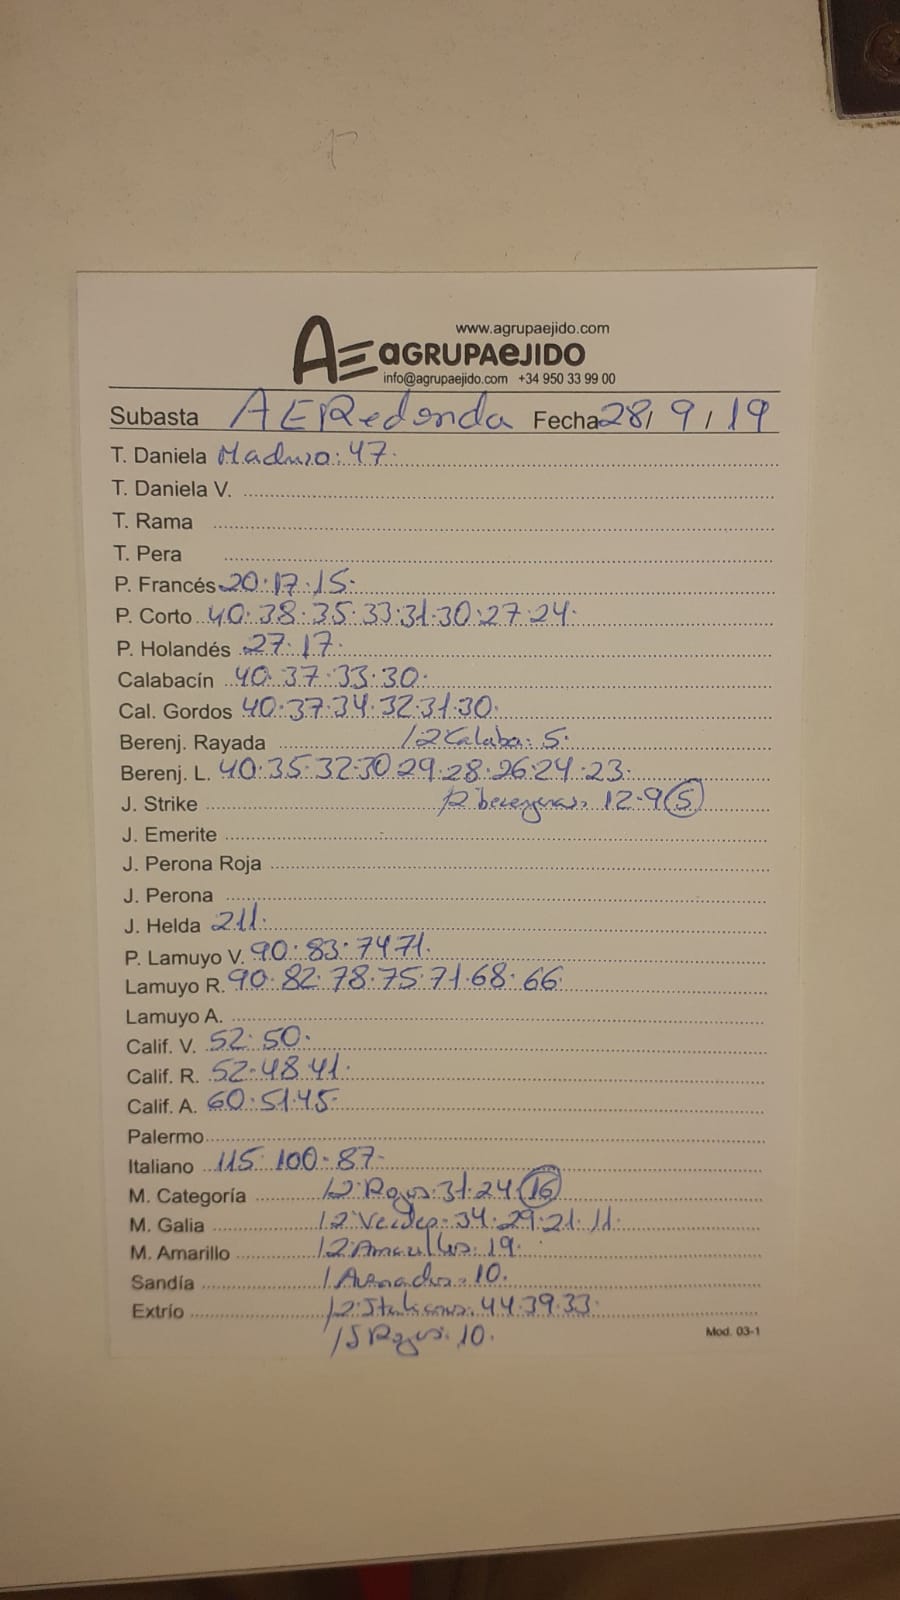 www.agrupaejido.com
AE aGRUPAeJIDO
info@agrupaejido.com +34 950 33 99 00
Subasta AERedonda Fecha 28/9/19
T. Daniela Maduro: 47.
T. Daniela V.
T. Rama
T. Pera
P. Francés 20.17.15.
P. Corto 40.38.35.33.31.30.27.24.
P. Holandés 27.17.
Calabacín 40.37.33.30.
Cal. Gordos 40.37.34.32.31.30.
Berenj. Rayada 12 Calaba: 5.
Berenj. L. 40.35.32.30.29.28.26.24.23.
J. Strike 12.9 5
J. Emerite
J. Perona Roja
J. Perona
J. Helda 211.
P. Lamuyo V. 90.83.74.71.
Lamuyo R. 90.82.78.75.71.68.66.
Lamuyo A.
Calif. V. 52.50.
Calif. R. 52.48.41.
Calif. A. 60.51.45.
Palermo
Italiano 115.100.87.
M. Categoría 12 Rojos: 31.24 16
M. Galia 12 Verdes: 34.29.21.11.
M. Amarillo 12 Amarillos: 19.
Sandía 10.
Extrío 12 Italianos: 44.39.33.
15 Rojos: 10.
Mod. 03-1